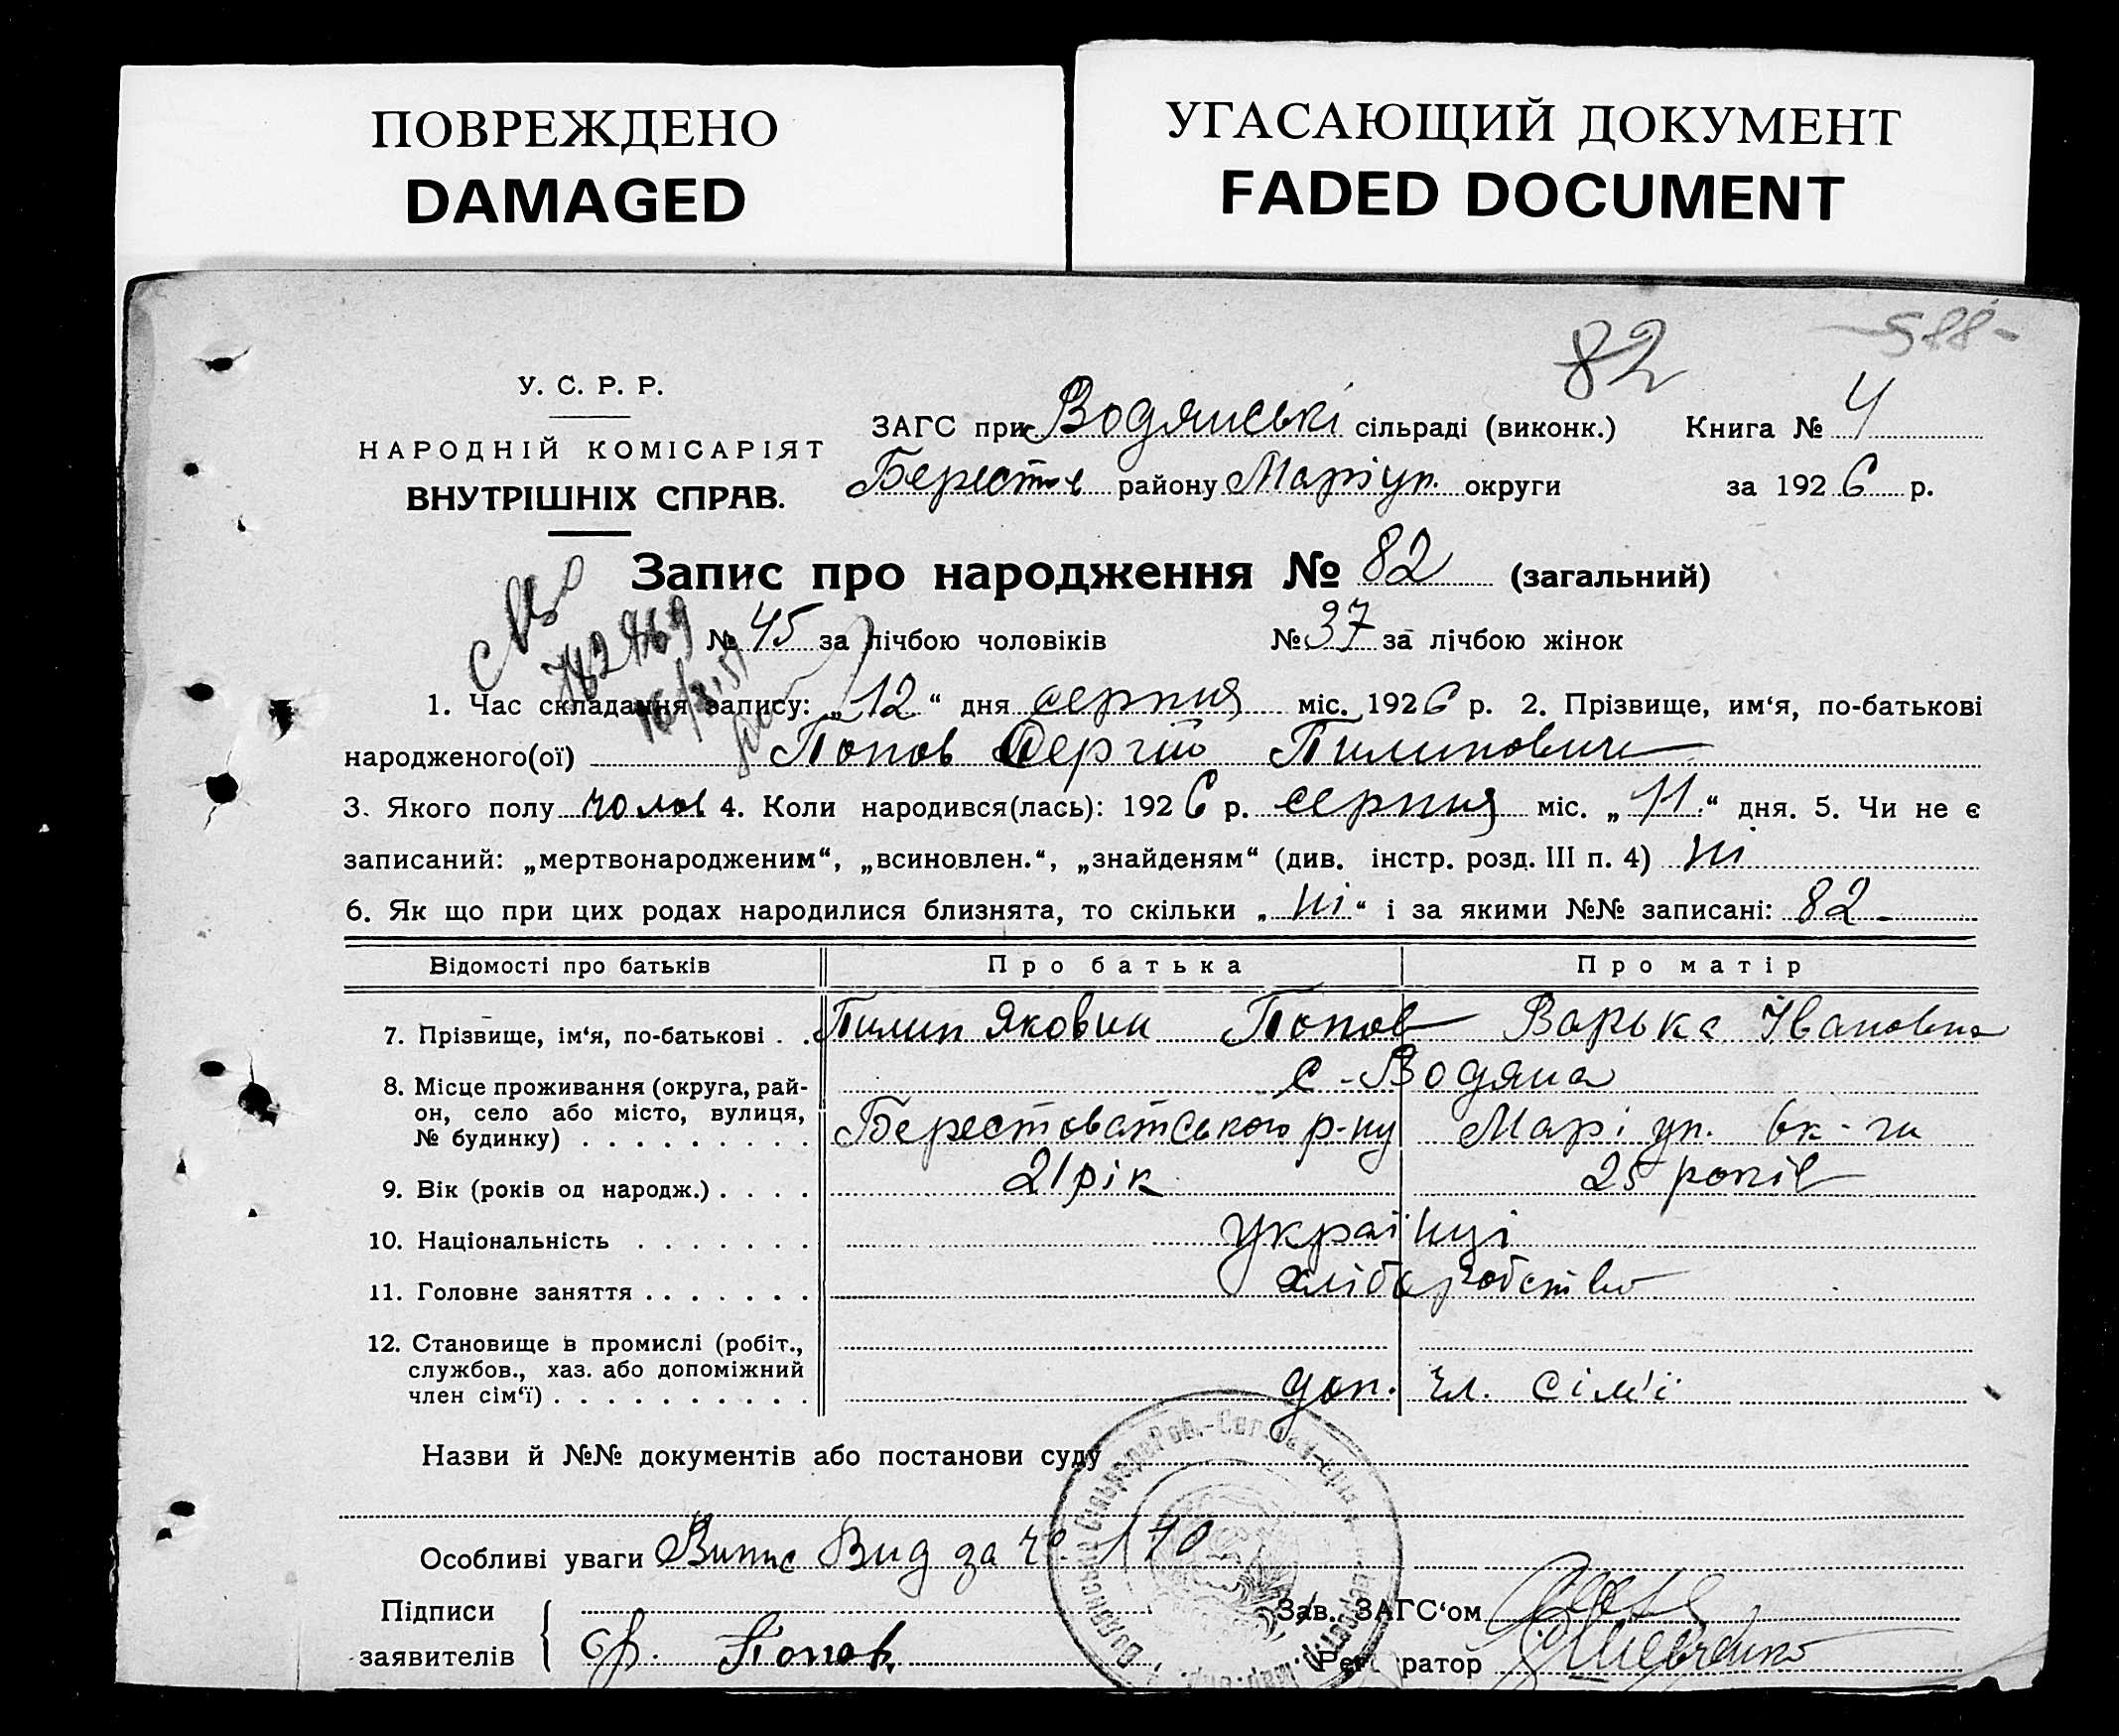 ПОВРЕЖДЕНО
DAMAGED
УГАСАЮЩИЙ ДОКУМЕНТ
FADED DOCUMENT
588-
82
У. С. Р. Р.
НАРОДНІЙ КОМІСАРІЯТ
ВНУТРІШНІХ СПРАВ.
ЗАГС при Водянські сільраді (виконк.) Книга № 4
Берестов району Маріуп. округи за 1926 р.
Запис про народження № 82 (загальний)
№ 45 за лічбою чоловіків № 37 за лічбою жінок
1. Час складання запису: „12“ дня серпня міс. 1926 р. 2. Прізвище, им‘я, по-батькові
народженого(ої) Попов Сергій Пилипович
3. Якого полу чолов 4. Коли народився(лась): 1926 р. серпня міс. „11“ дня. 5. Чи не є
записаний: „мертвонародженим“, „всиновлен.“, „знайденям“ (див. інстр. розд. III п. 4) ні
6. Як що при цих родах народилися близнята, то скільки „ні“ і за якими №№ записані: 82-
Відомості про батьків Про батька Про матір
7. Прізвище, ім‘я, по-батькові . . Пилип Якович Попов Варька Івановна
8. Місце проживання (округа, рай- с-Водяна
он, село або місто, вулиця,
№ будинку) . . . . . . . . . Берестоватського р-ну Маріуп. Ок-ги
9. Вік (років од народж.) . . . . 21 рік 25 років
10. Національність . . . . . . . українці
11. Головне заняття . . . . . . . хліборобство
12. Становище в промислі (робіт.,
службов., хаз. або допоміжний
член сім‘ї) . . . . . . . . . . доп. чл. сім'ї
Назви й №№ документів або постанови суду
Особливі уваги Випис Вид за № 170
Підписи
заявителів Попов
Зав. ЗАГС‘ом
Реєстратор Шевченко